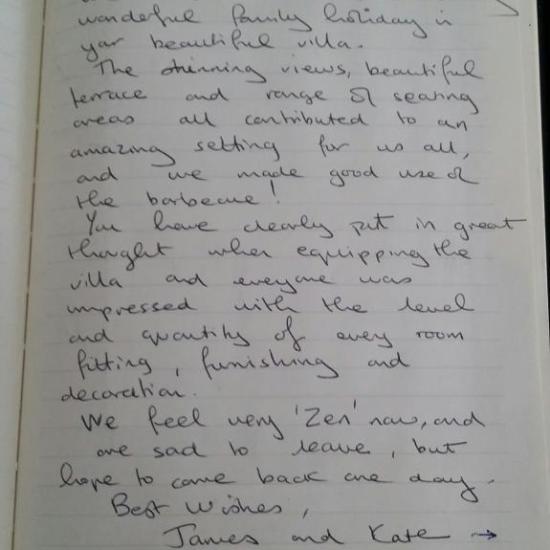 wonderful family holiday in
your beautiful villa.
The stunning views, beautiful
terrace and range of seating
areas all contributed to an
amazing setting for us all,
and we made good use of
the barbecue!
You have clearly put in great
thought when equipping the
villa and everyone was
impressed with the level
and quantity of every room
fitting, furnishing and
decoration.
We feel very 'Zen' now, and
are sad to leave, but
hope to come back one day.
Best Wishes,
James and Kate →